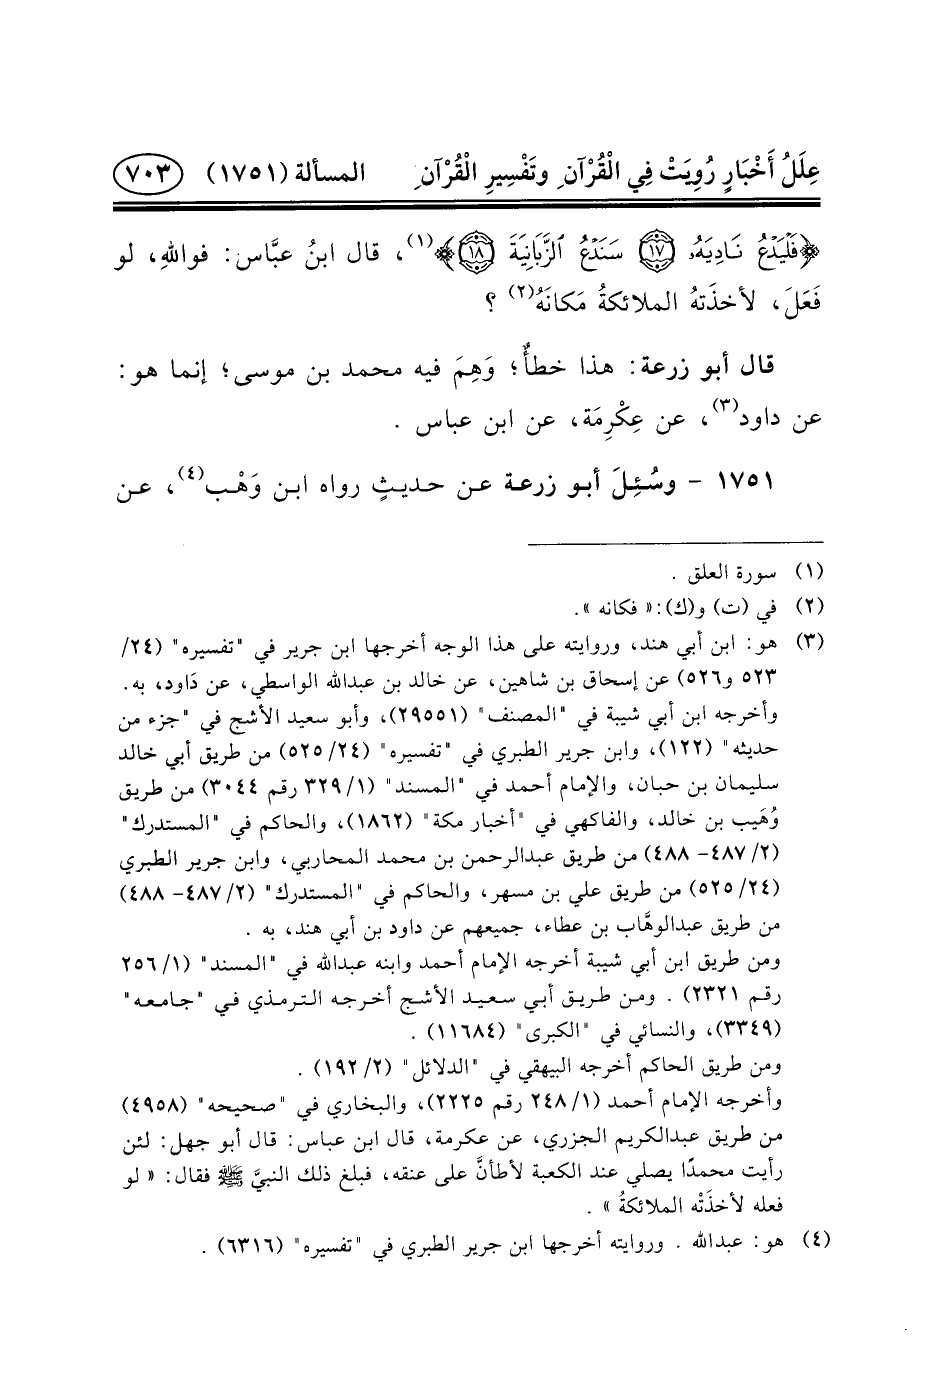 عِلَلُ أَخْبَارٍ رُوِيَتْ فِي الْقُرْآنِ وتَفْسِيرِ الْقُرْآنِ المسألة (١٧٥١) ٧٠٣
﴿فَلْيَدْعُ نَادِيَهُۥ ١٧ سَنَدْعُ ٱلزَّبَانِيَةَ ١٨﴾(١)، قال ابنُ عبَّاس: فواللهِ، لو
فَعَلَ، لأخذَتهُ الملائكةُ مَكانَهُ(٢) ؟
قال أبو زرعة: هذا خطأٌ؛ وَهِمَ فيه محمد بن موسى؛ إنما هو:
عن داود(٣)، عن عِكْرِمَة، عن ابن عباس .
١٧٥١ - وسُئِلَ أبو زرعة عن حديثٍ رواه ابن وَهْب(٤)، عن
(١) سورة العلق .
(٢) في (ت) و(ك):« فكانه ».
(٣) هو: ابن أبي هند، وروايته على هذا الوجه أخرجها ابن جرير في "تفسيره" (٢٤/
٥٢٣ و٥٢٦) عن إسحاق بن شاهين، عن خالد بن عبدالله الواسطي، عن دَاود، به.
وأخرجه ابن أبي شيبة في "المصنف" (٢٩٥٥١)، وأبو سعيد الأشج في "جزء من
حديثه" (١٢٢)، وابن جرير الطبري في "تفسيره" (٥٢٥/٢٤) من طريق أبي خالد
سليمان بن حبان، والإمام أحمد في "المسند" (٣٢٩/١ رقم ٣٠٤٤) من طريق
وُهَيب بن خالد، والفاكهي في "أخبار مكة" (١٨٦٢)، والحاكم في "المستدرك"
(٢/ ٤٨٧- ٤٨٨) من طريق عبدالرحمن بن محمد المحاربي، وابن جرير الطبري
(٥٢٥/٢٤) من طريق علي بن مسهر، والحاكم في "المستدرك" (٢/ ٤٨٧- ٤٨٨)
من طريق عبدالوهَّاب بن عطاء، جميعهم عن داود بن أبي هند، به .
ومن طريق ابن أبي شيبة أخرجه الإمام أحمد وابنه عبدالله في "المسند" (٢٥٦/١
رقم ٢٣٢١) . ومن طريق أبي سعيد الأشج أخرجه الترمذي في "جامعه"
(٣٣٤٩)، والنسائي في "الكبرى" (١١٦٨٤) .
ومن طريق الحاكم أخرجه البيهقي في "الدلائل" (٢/ ١٩٢) .
وأخرجه الإمام أحمد (٢٤٨/١ رقم ٢٢٢٥)، والبخاري في "صحيحه" (٤٩٥٨)
من طريق عبدالكريم الجزري، عن عكرمة، قال ابن عباس: قال أبو جهل: لئن
رأيت محمدًا يصلي عند الكعبة لأطأنَّ على عنقه، فبلغ ذلك النبيَّ ﷺ فقال: « لو
فعله لأخذَتْه الملائكةُ » .
(٤) هو: عبدالله . وروايته أخرجها ابن جرير الطبري في "تفسيره" (٦٣١٦) .